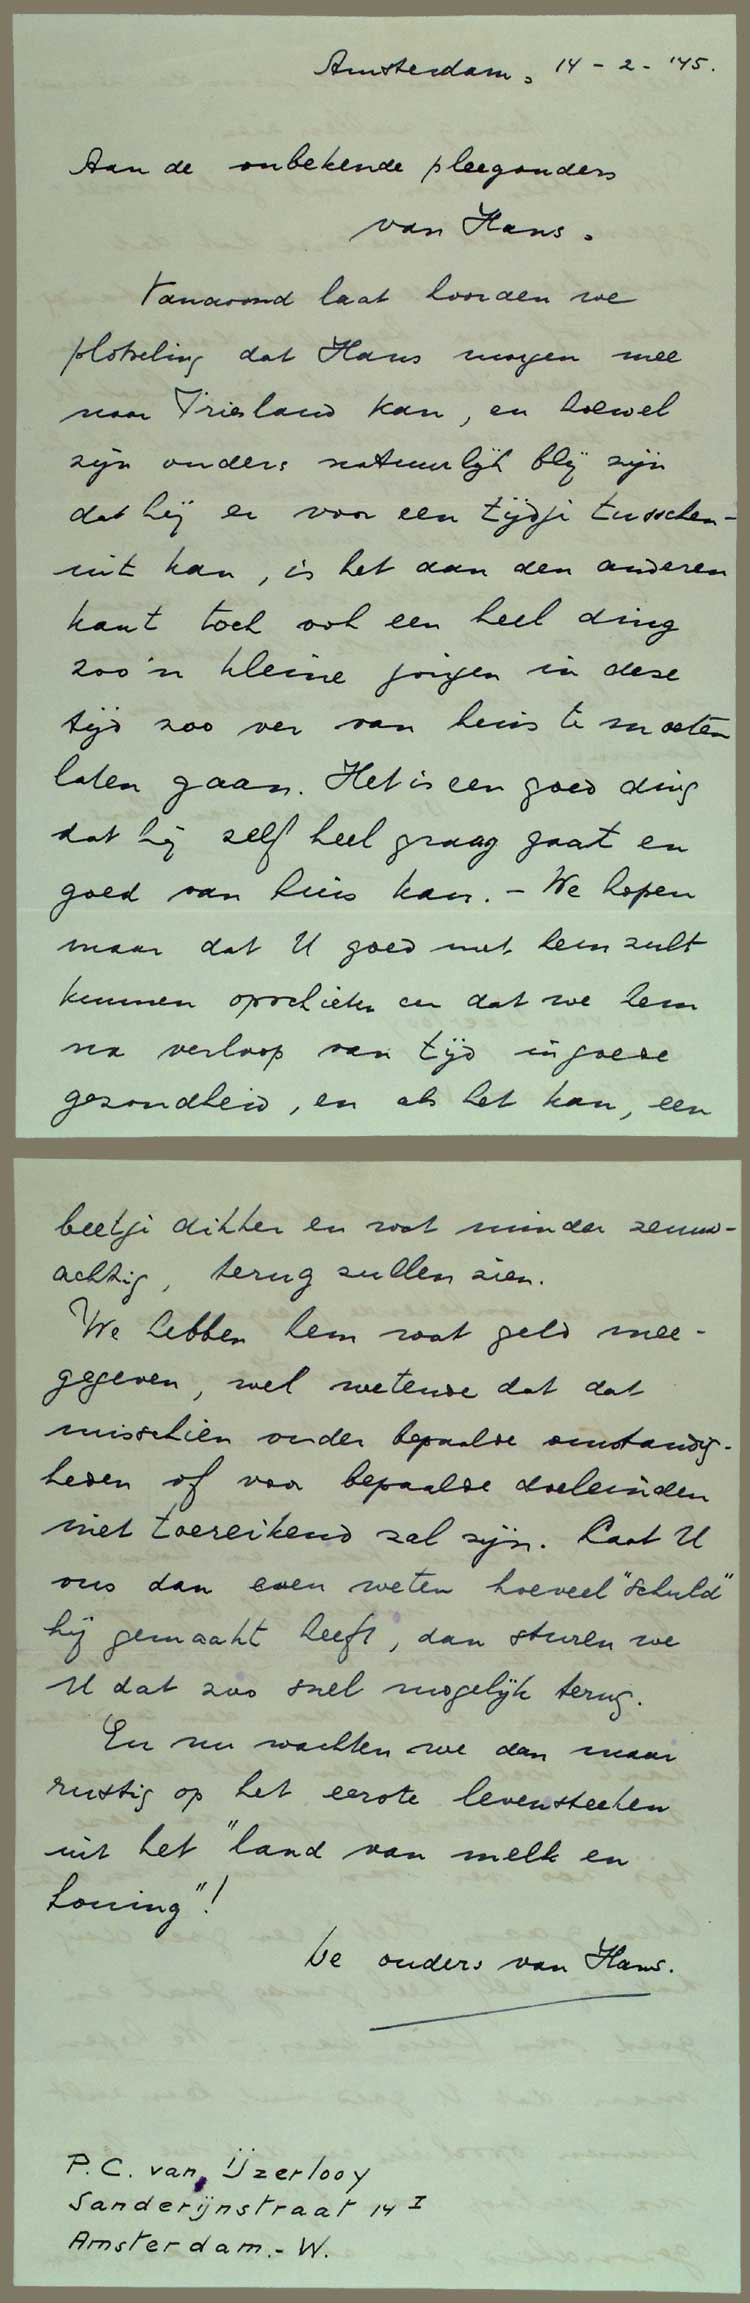 Amsterdam, 14 - 2 - '45.
Aan de onbekende pleegouders
van Hans.
Vanavond laat hoorden we
plotseling dat Hans morgen mee
naar Friesland kan, en hoewel
zijn ouders natuurlijk blij zijn
dat hij er voor een tijdje tusschen-
uit kan, is het aan den anderen
kant toch ook een heel ding
zoo'n kleine jongen in deze
tijd zoo ver van huis te moeten
laten gaan. Het is een goed ding
dat hij zelf heel graag gaat en
goed van huis kan. - We hopen
maar dat U goed met hem zult
kunnen opschieten en dat we hem
na verloop van tijd in goede
gezondheid, en als het kan, een
beetje dikker en wat minder zenuw-
achtig, terug zullen zien.
We hebben hem wat geld mee-
gegeven, wel wetende dat dat
misschien onder bepaalde omstandig-
heden of voor bepaalde doeleinden
niet toereikend zal zijn. Laat U
ons dan even weten hoeveel "schuld"
hij gemaakt heeft, dan sturen we
U dat zoo snel mogelijk terug.
En nu wachten we dan maar
rustig op het eerste levensteeken
uit het "land van melk en
honing"!
De ouders van Hans.
P.C. van IJzerlooy
Sanderijnstraat 14 I
Amsterdam.- W.